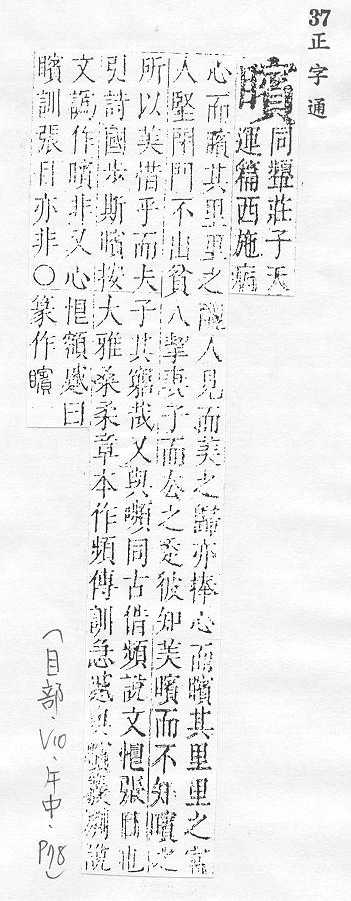 37正字通
矉
同顰莊子天
運篇西施病
心而矉其里里之醜人見而美之歸亦捧心而矉其里里之富
人堅閉門不出貧人挈妻子而去之走彼知美矉而不知矉之
所以美惜乎而夫子其窮哉又與嚬同古借頻說文恨張目也
引詩國步斯矉按大雅桑柔章本作頻傳訓急蹙與矉義別說
文譌作矉非又心恨額蹙曰
矉訓張目亦非○篆作矉
(目部·V10·午中·P78)